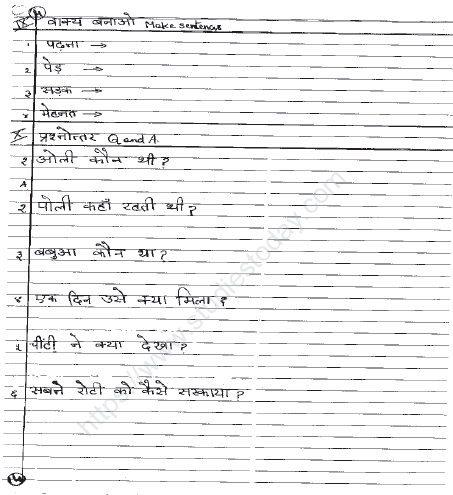 IX वाक्य बनाओ Make sentences
१ पढ़ना →
२ पेड़ →
३ सड़क →
४ मेहनत →
X प्रश्नोत्तर Q and A.
१ ओली कौन थी?
A
२ पोली कहाँ रहती थी?
३ बबुआ कौन था?
४ एक दिन उसे क्या मिला?
५ चींटी ने क्या देखा?
६ सबने रोटी को कैसे सरकाया?
https://www.studiestoday.com